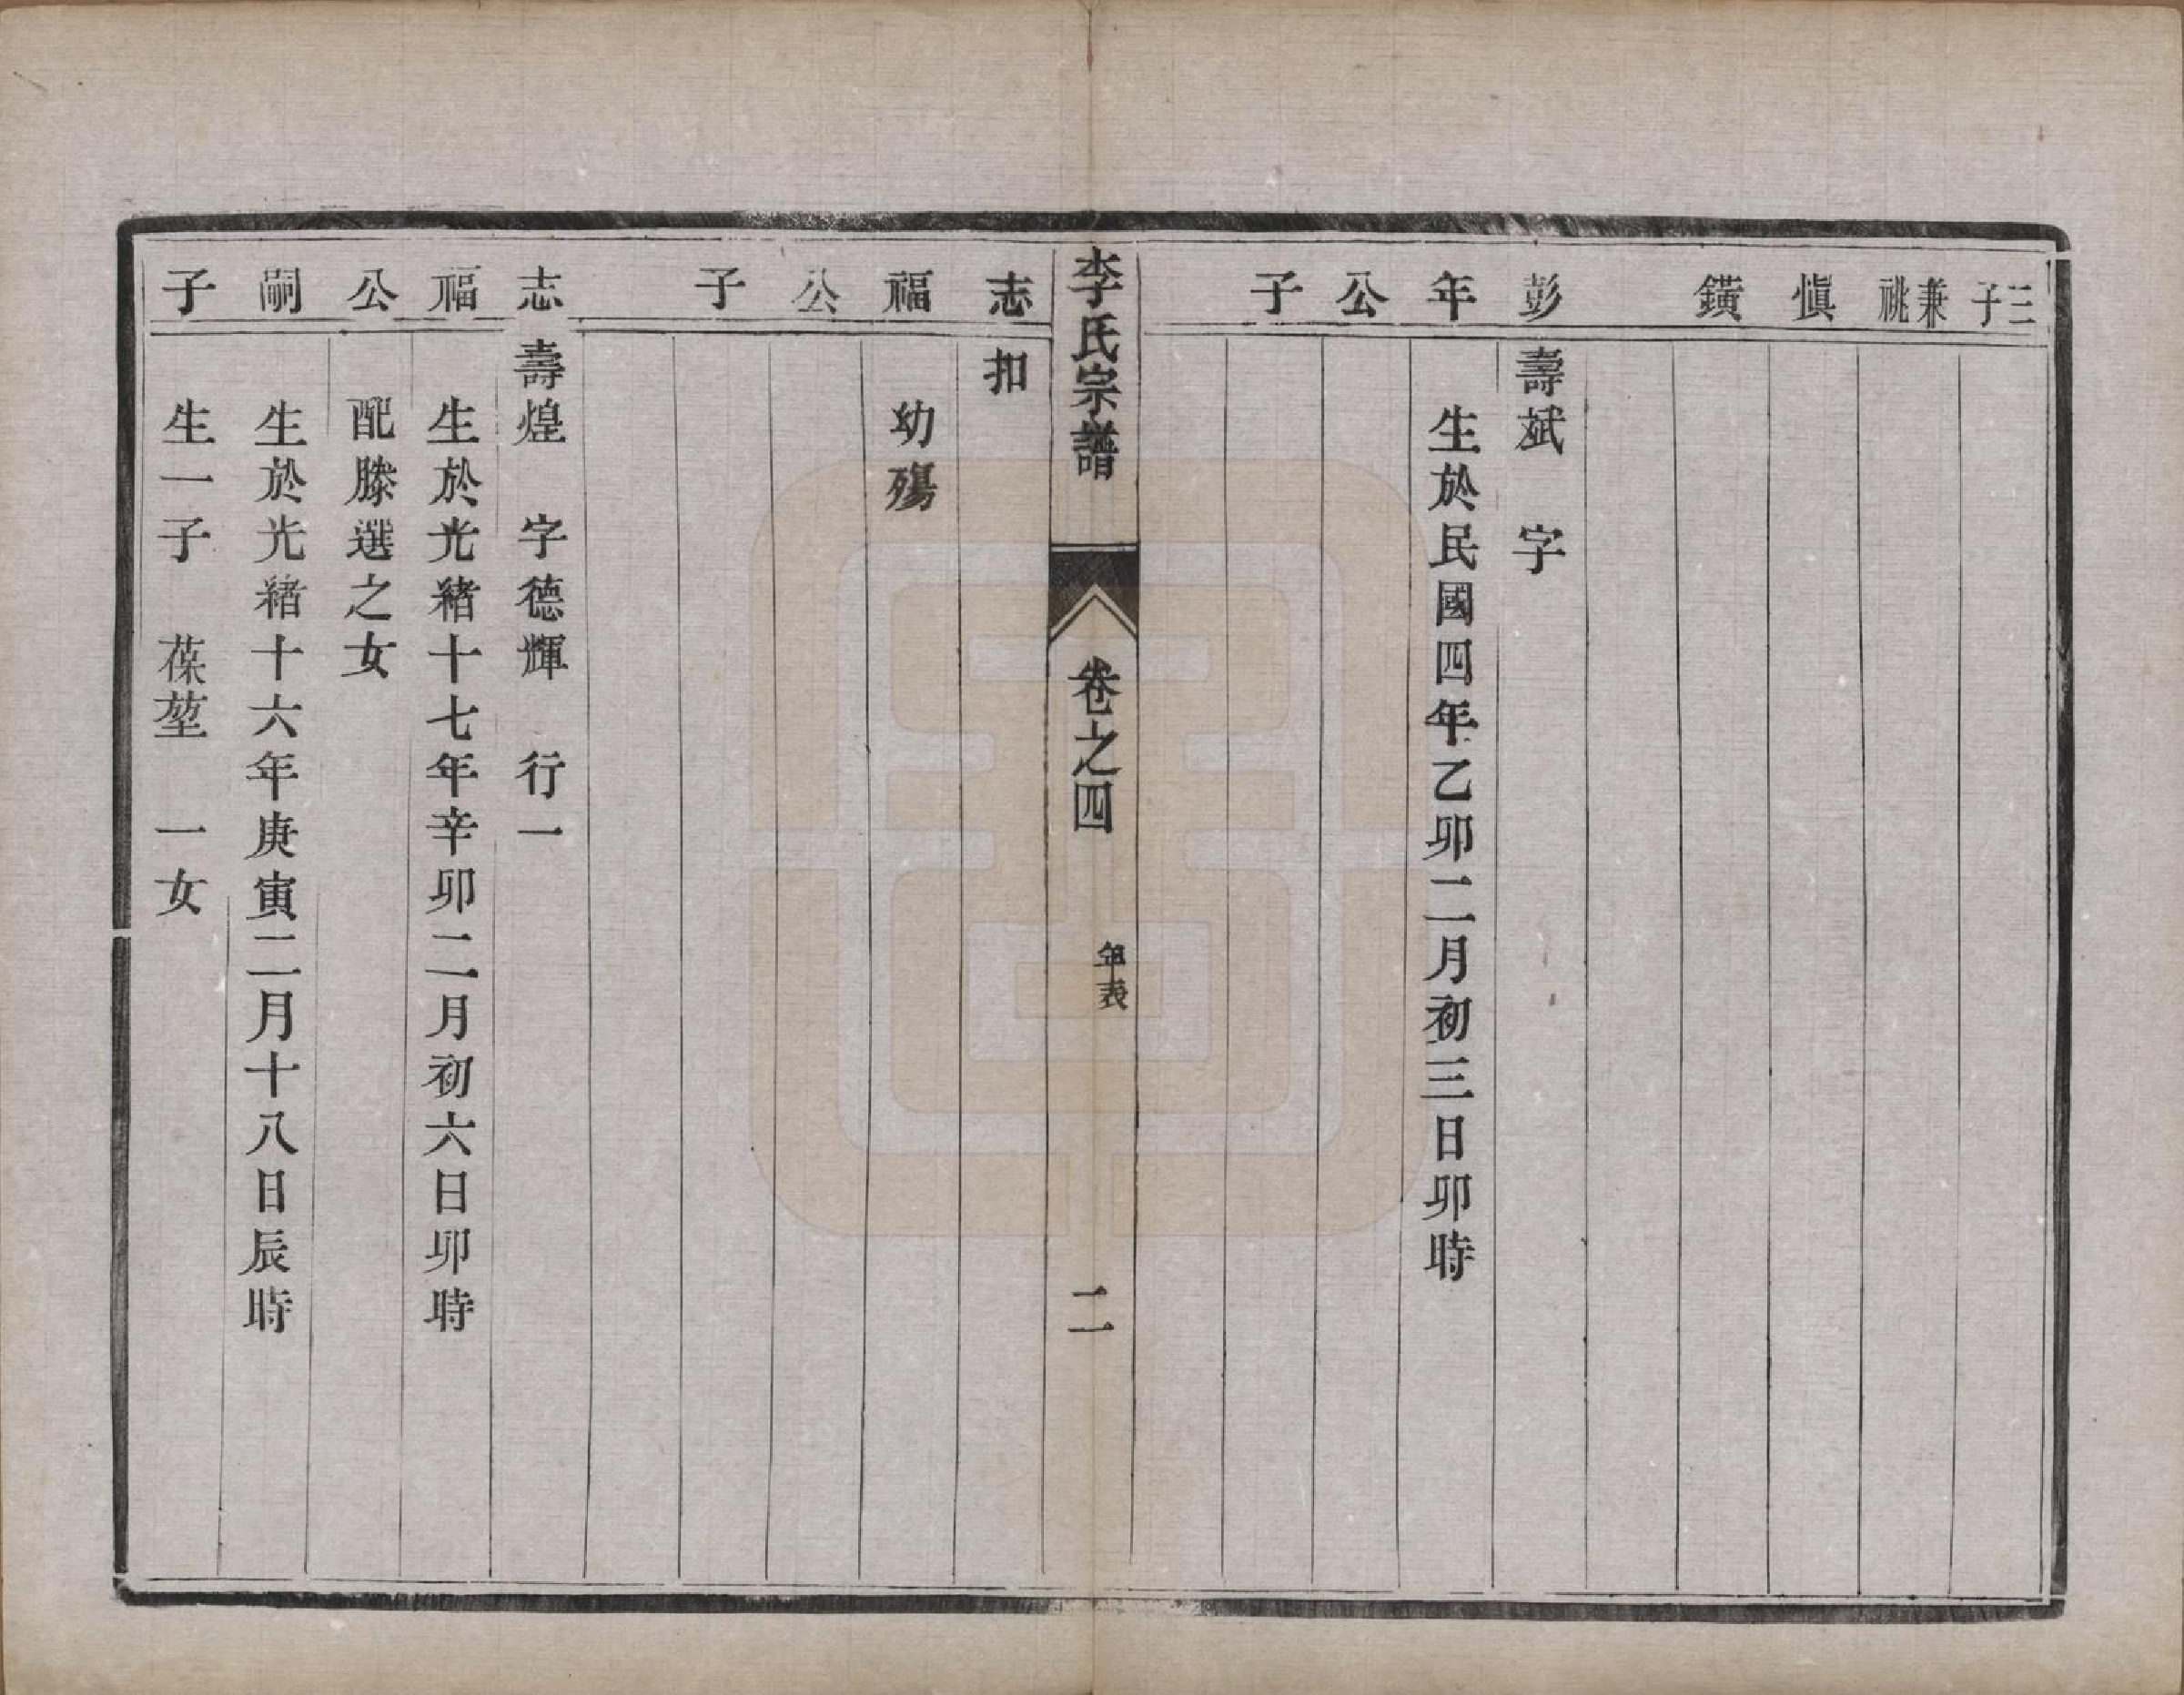 三子
兼祧
愼
鐄
彭年公子
壽斌　字
生於民國四年乙卯二月初三日卯時
李氏宗譜　卷之四　年表　二
志福公子
扣
幼殤
志福公嗣子
壽煌　字德輝　行一
生於光緒十七年辛卯二月初六日卯時
配滕選之女
生於光緒十六年庚寅二月十八日辰時
生一子　葆堃　一女